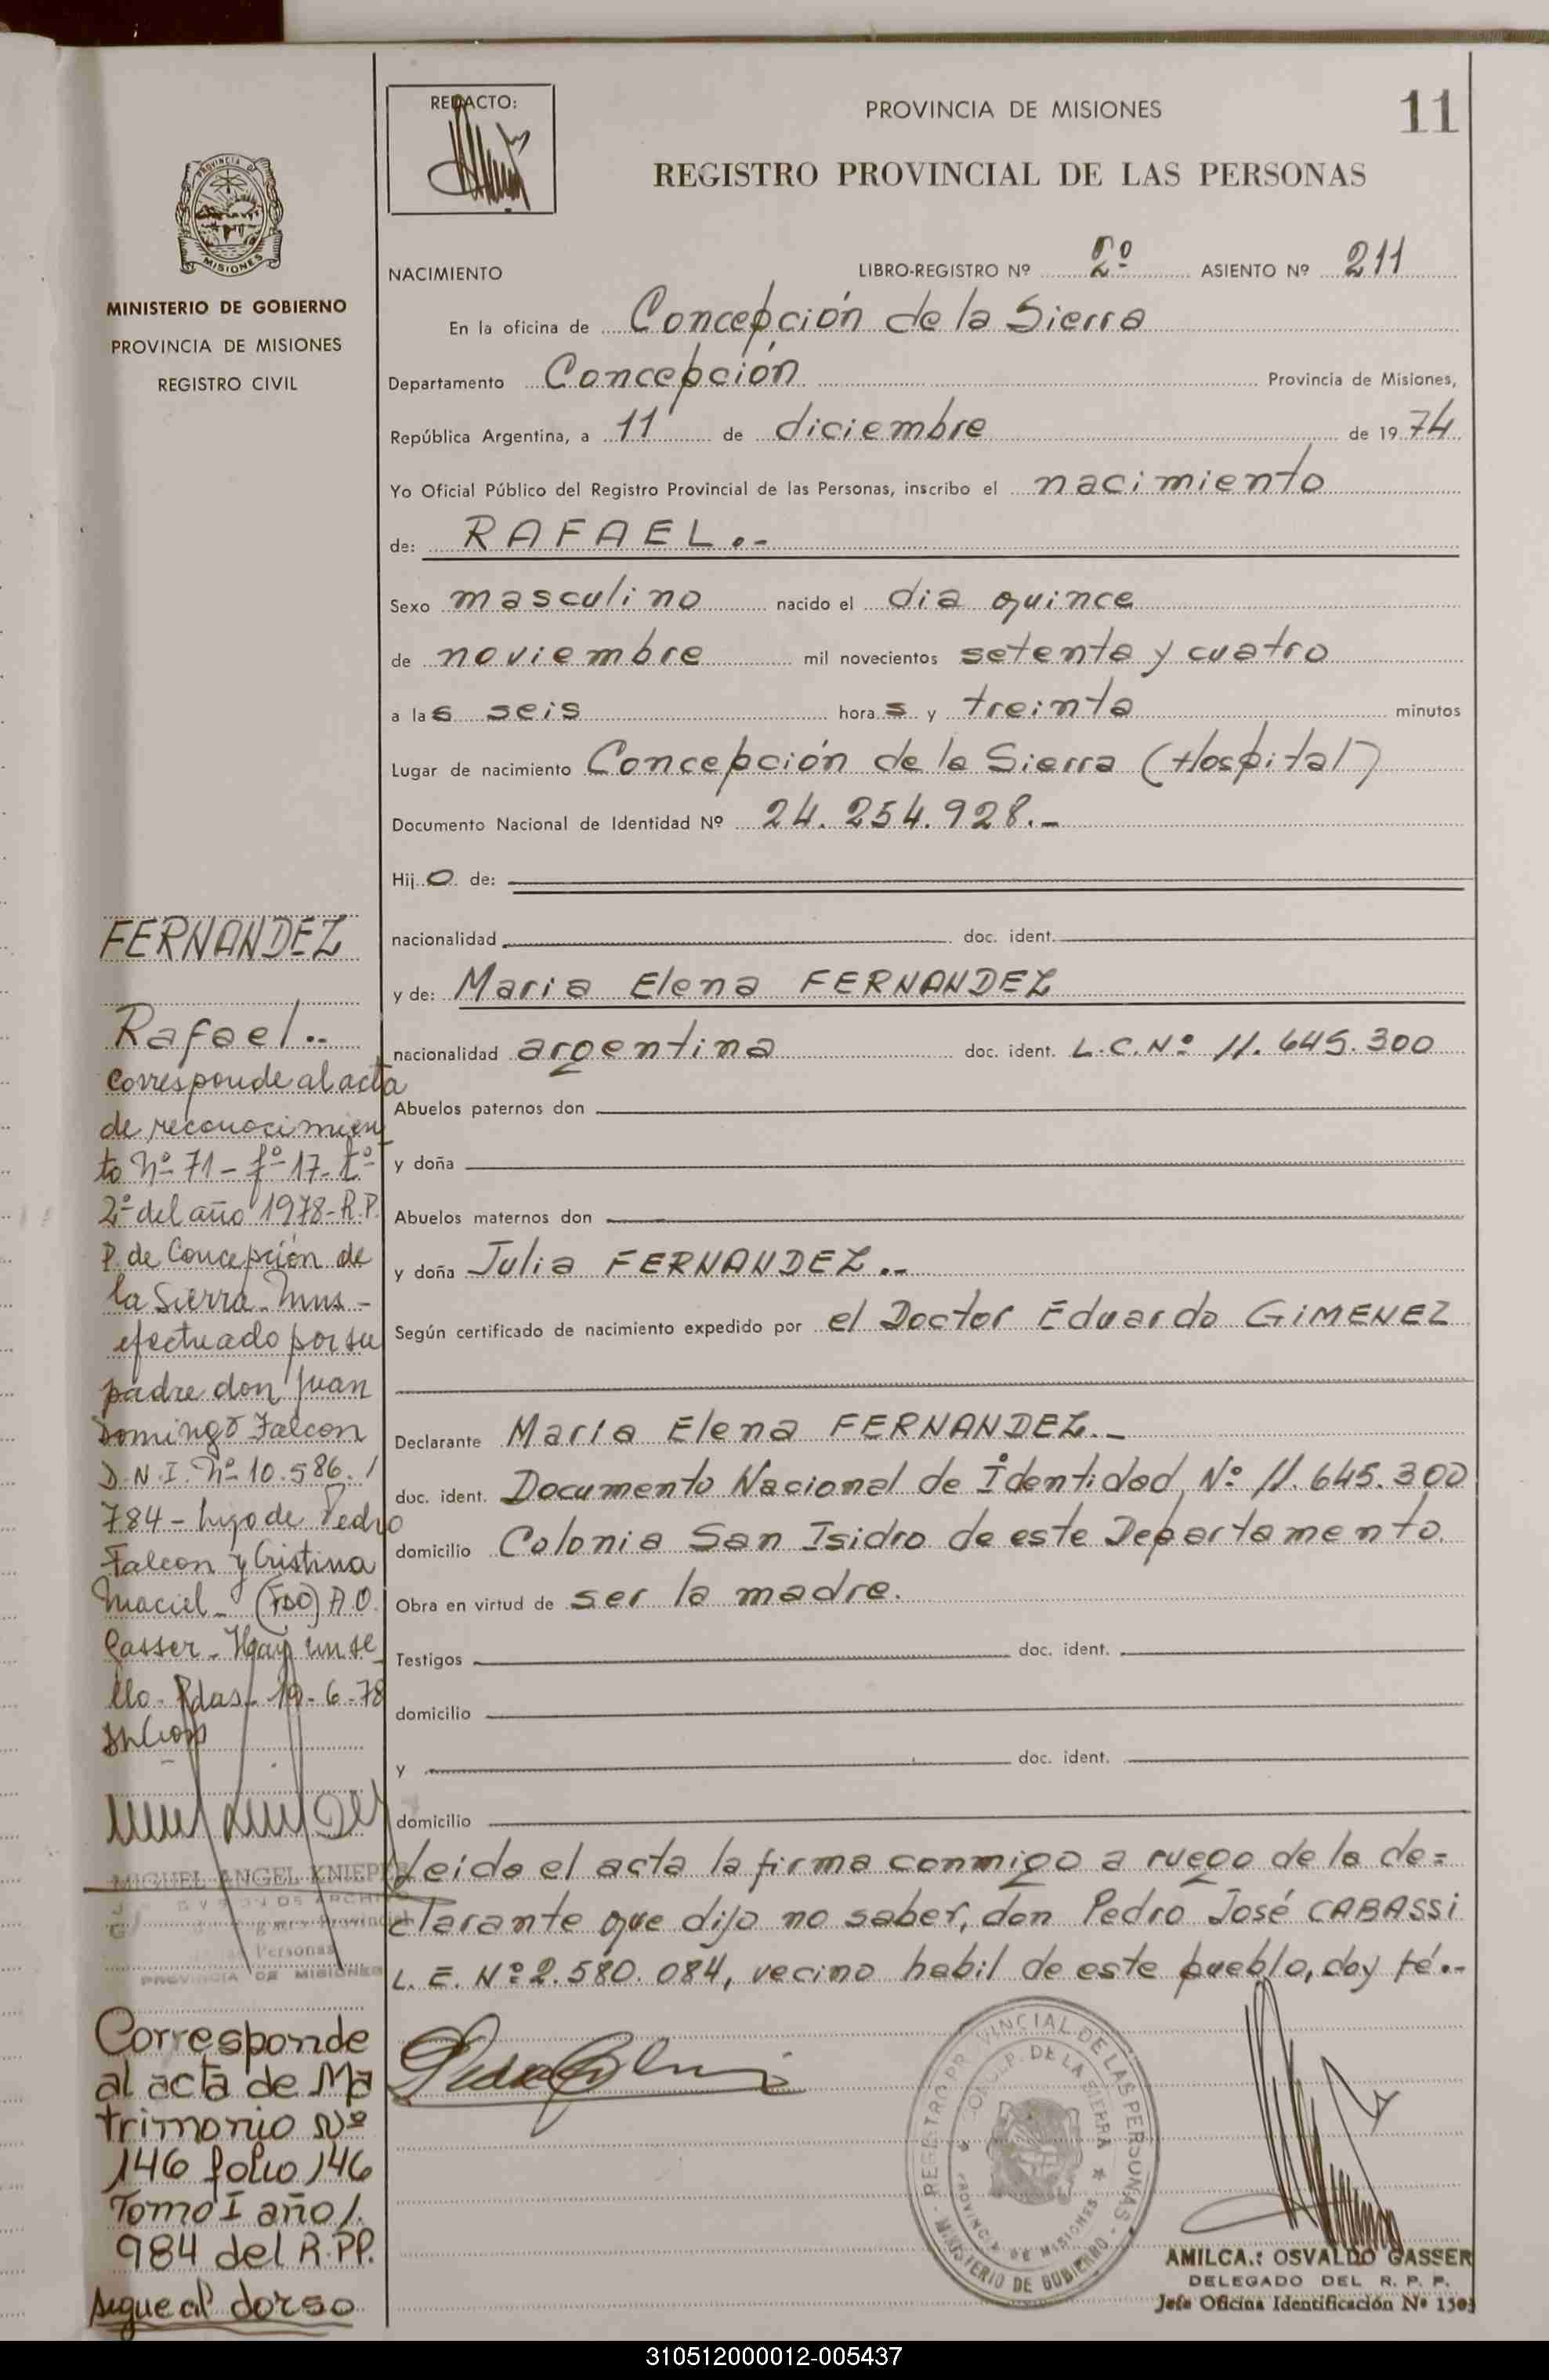 REDACTO:
PROVINCIA DE MISIONES
11
REGISTRO PROVINCIAL DE LAS PERSONAS
PROVINCIA DE
MISIONES
MINISTERIO DE GOBIERNO
PROVINCIA DE MISIONES
REGISTRO CIVIL
NACIMIENTO LIBRO-REGISTRO Nº 2º ASIENTO Nº 211
En la oficina de Concepción de la Sierra
Departamento Concepción Provincia de Misiones,
República Argentina, a 11 de diciembre de 1974
Yo Oficial Público del Registro Provincial de las Personas, inscribo el nacimiento
de: RAFAEL.-
Sexo masculino nacido el dia quince
de noviembre mil novecientos setenta y cuatro
a las seis horas y treinta minutos
Lugar de nacimiento Concepción de la Sierra (Hospital)
Documento Nacional de Identidad Nº 24.254.928.-
Hijo de:
nacionalidad doc. ident.
y de: Maria Elena FERNANDEZ
nacionalidad argentina doc. ident. L.C.Nº 11.645.300
Abuelos paternos don
y doña
Abuelos maternos don
y doña Julia FERNANDEZ.-
Según certificado de nacimiento expedido por el Doctor Eduardo GIMENEZ
Declarante María Elena FERNANDEZ.-
doc. ident. Documento Nacional de Identidad Nº 11.645.300
domicilio Colonia San Isidro de este Departamento.
Obra en virtud de ser la madre.
Testigos doc. ident.
domicilio
y doc. ident.
domicilio
Leida el acta la firma conmigo a ruego de la de=
clarante que dijo no saber, don Pedro José CABASSI
L.E. Nº 2.580.084, vecino habil de este pueblo, doy fé.-
FERNANDEZ
Rafael.-
Corresponde al acta
de reconocimien
to Nº 71 - fº 17 - tº
2º del año 1978 - R.P.
P. de Concepción de
la Sierra - Mnes -
efectuado por su
padre don Juan
Domingo Falcon
D.N.I. Nº 10.586./
784 - hijo de Pedro
Falcon y Cristina
Maciel - (FDO) A.O.
Gasser - Hay un se
llo - Pdas - 19-6-78
MIGUEL ANGEL KNIEPER
DIVISION DE ARCHIVO
Provincial
Personas
PROVINCIA DE MISIONES
Corresponde
al acta de Ma
trimonio Nº
146 folio 146
Tomo I año 1.
984 del R.PP.
sigue al dorso
REGISTRO PROVINCIAL DE LAS PERSONAS
MINISTERIO DE GOBIERNO
CONCEP. DE LA SIERRA
PROVINCIA DE MISIONES
AMILCA.: OSVALDO GASSER
DELEGADO DEL R. P. P.
Jefe Oficina Identificación Nº 1503
310512000012-005437